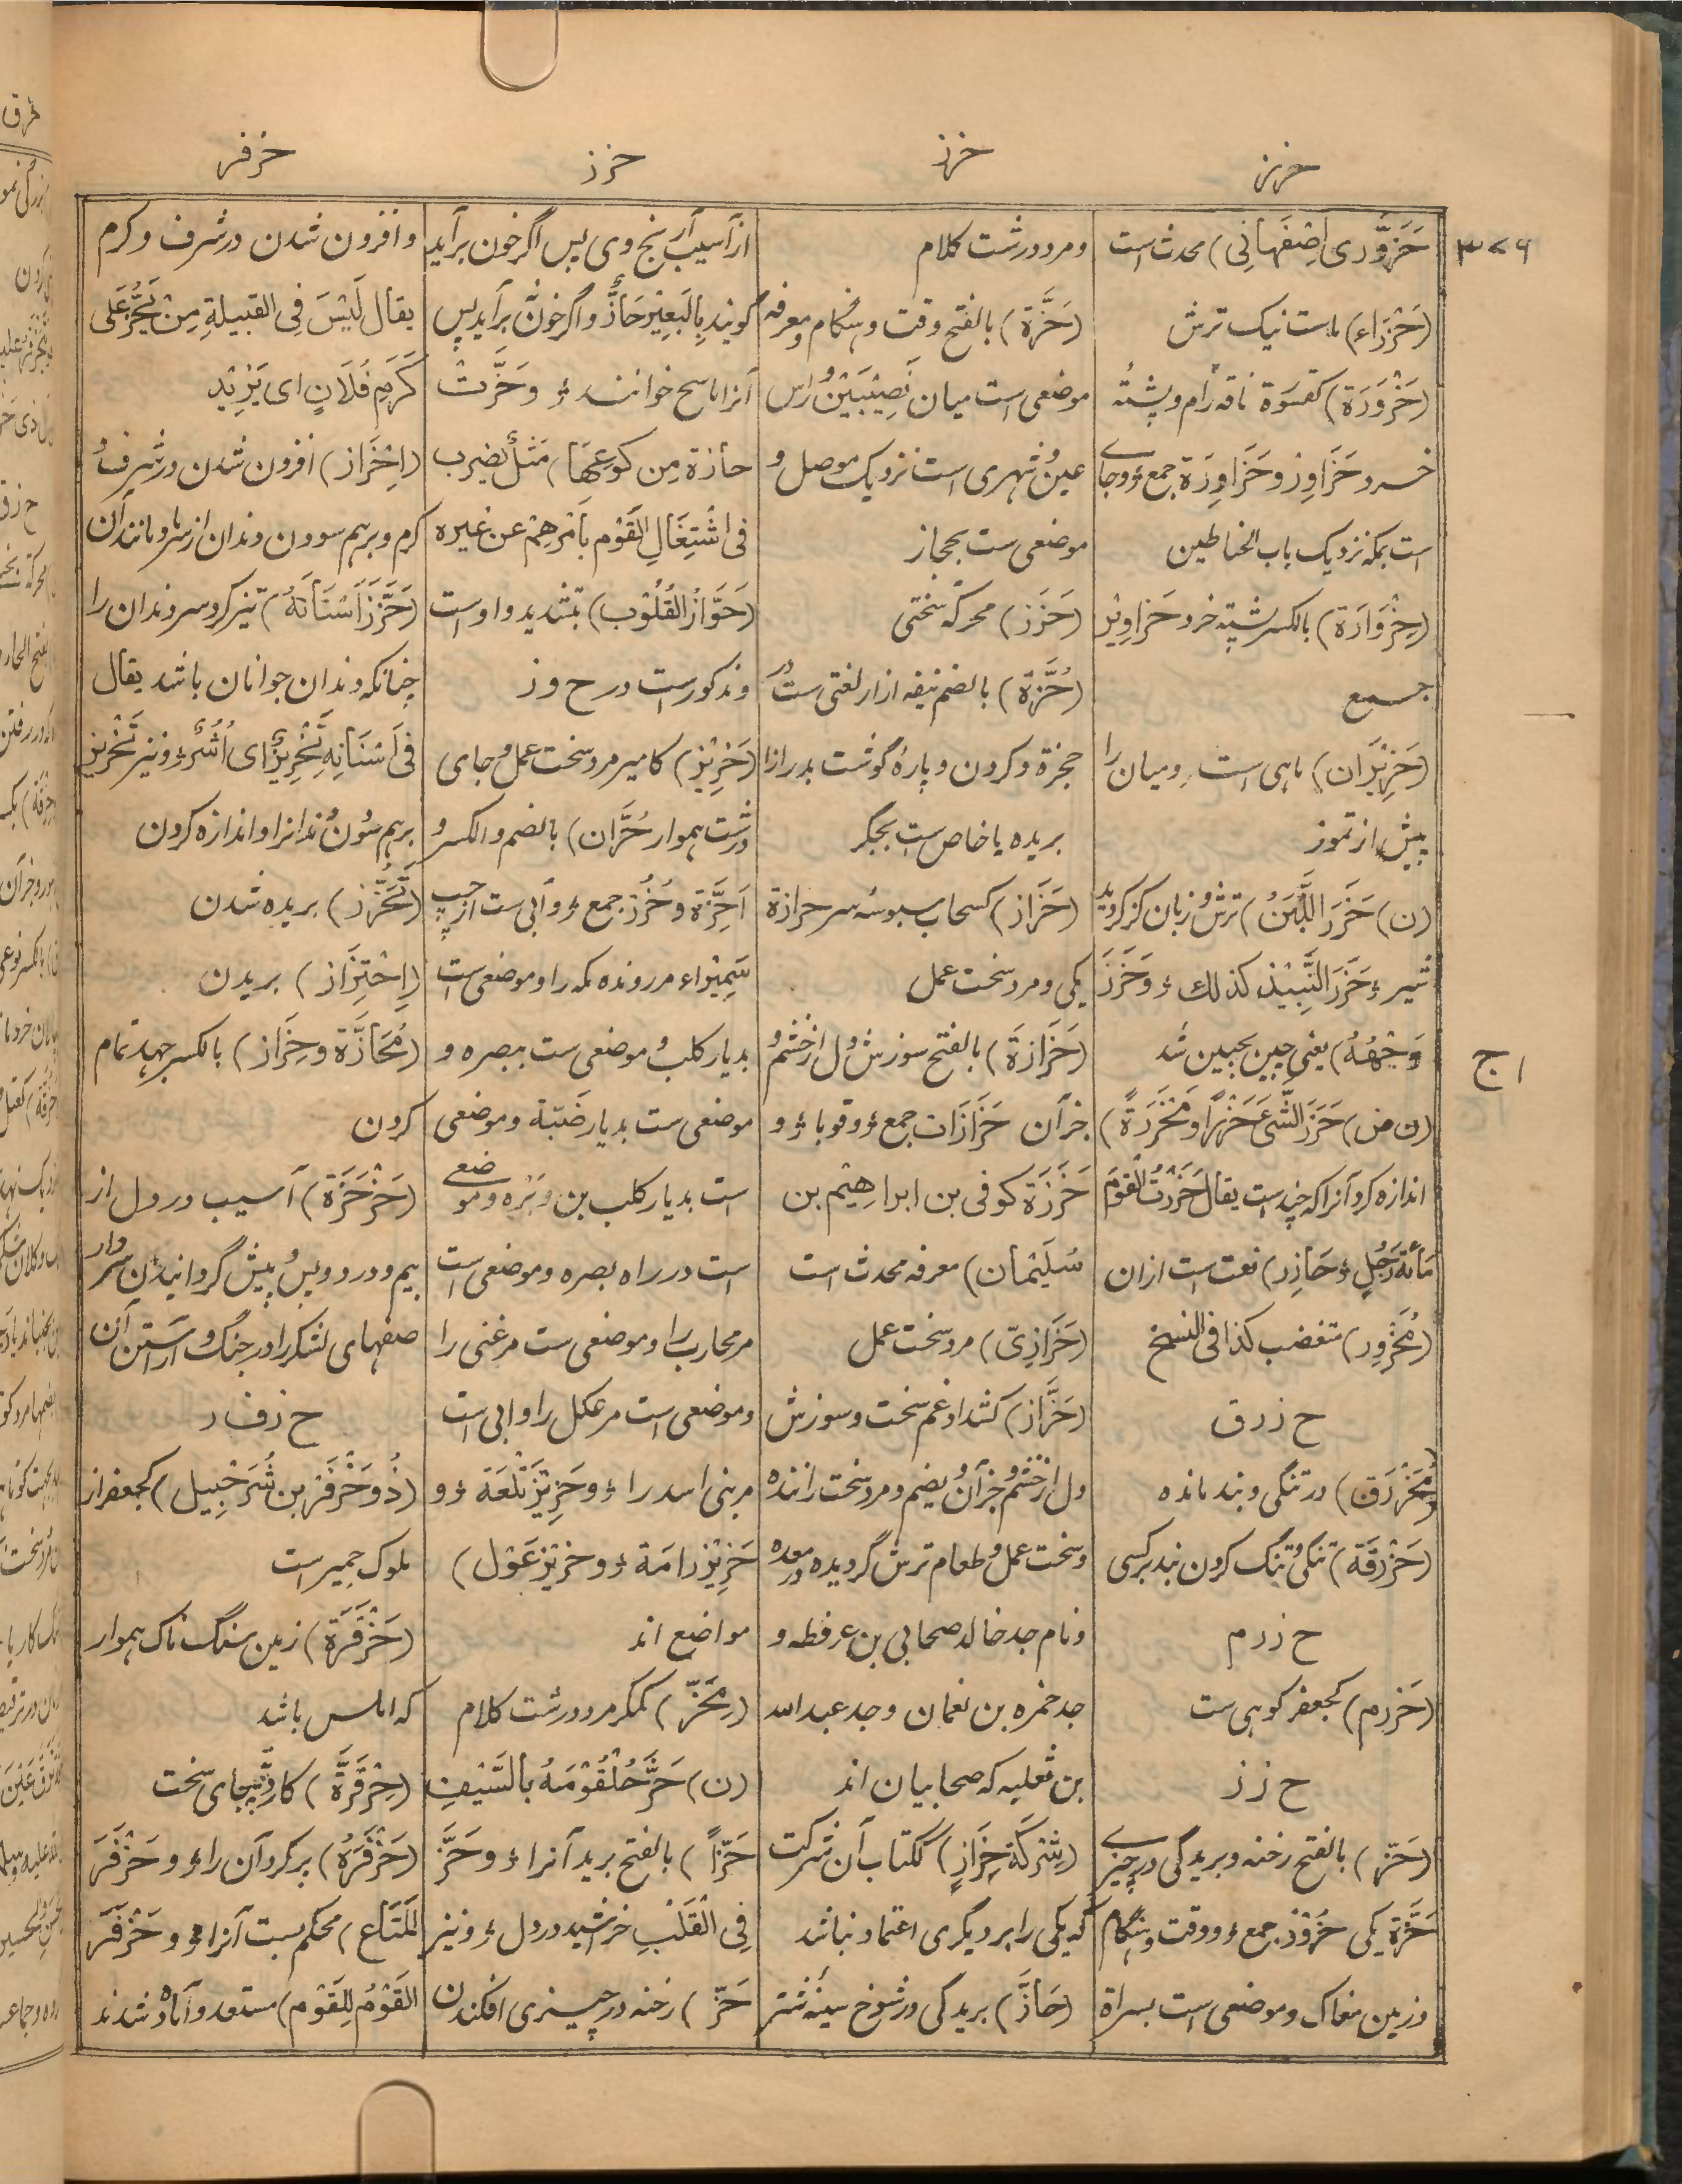 حزر
حزز
حزز
حزفر
۳۷۶
حَزَوَّرِی اِصْفَهَانِی) محدث است
(حَزْرَاء) ماست نیک ترش
(حَزْوَرَة) کقسوَة ناقه رام و پشتهٔ
خرد حَزَاوِر و حَزَاوِرَة جمع و جاے
است بمکه نزدیک باب الحناطین
(حِزْوَارَة) بالکسر پشته خرد حَزَاوِیْر
جمع
(حَزِیْرَان) ماهی است رومیان را
پیش از تموز
(ن) حَزَرَ اللَّبَنُ) ترش و زبان گز گردید
شیر و حَزَرَ النَّبِیْذ کذلك و حَزَرَ
وَجْهُهُ) یعنی چین بجبین شد
(ن ض) حَزَرَ الشَّیَ حَزْرًا و مَحْزَرَةً)
اندازه کرد آنرا که چند است یقال حَزَرْتُ القَوْمَ
مِأَئةَ رَجُلٍ و حَازِر) نعت است ازان
(مُحَزْوِر) متغضب کذا فی النسخ
ح ز ر ق
(مُحَزْرَق) در تنگی و بند مانده
(حَزْرَقَة) تنگی و تنگ کردن بند بر کسی
ح ز ر م
(حَزرم) کجعفر کوهی ست
ح ز ز
(حَزّ) بالفتح رخنه و بریدگی در چیزے
حَزَّة یکی حُزُوْز جمع و وقت و هنگام
و زمین مغاک و موضعی است بسراة
و مرد درشت کلام
(حَزَّة) بالفتح وقت و هنگام و معرفه
موضعی است میان نَصِیْبَیْن و رأس
عین و شهری است نزدیک موصل و
موضعی ست بحجاز
(حَزَز) محرکه سختی
(حُزَّة) بالضم نیفه ازار لغتی ست در
حجزة و گردن و پارهٔ گوشت بدرازا
بریده یا خاص ست بجگر
(حَزَاز) کسحاب سبوسهٔ سر حزازة
یکی و مرد سخت عمل
(حَزَازَة) بالفتح سوزش دل از خشم و
جزآن حَزَازَات جمع و وقوباء و
حَزَزَة کوفی بن ابراهیْم بن
سُلَیْمَان) معرفه محدث است
(حَزَازِیّ) مرد سخت عمل
(حَزَّاز) کشداد غم سخت و سوزش
دل از خشم و جزآن و یضم و مرد سخت راننده
و سخت عمل و طعام ترش گردیده در معده
و نام جد خالد صحابی بن عرفطه و
جد خمره بن نعمان و جد عبدالله
بن ثعلبه که صحابیان اند
(شِرْکَة حِزَاز) ککتاب آن شرکت
که یکی را بر دیگری اعتماد نباشد
(حَازّ) بریدگی در شوخ سینهٔ شتر
از آسیب آرنج وی پس اگر خون برآید
گویند بِالبَعِیْرِ حَازٌّ و اگر خون برآید پس
آنرا ماسح خوانند و حَزَّتْ
حازة مِن کوعِهَا) مَثَلٌ یضرب
فی اشْتِغَالِ القَوْم بأمْرِهِمْ عن غیره
(حَوَّازُ القُلُوْب) بتشدید واو است
و مذکورست در ح و ز
(حَزِیْز) کامیر مرد سخت عمل و جای
درشت هموار حُزَّان) بالضم و الکسر و
اَحِزَّة و حُزُز جمع و آبی ست از چپ
سَمِیْراء مر رونده مکه را و موضعی ست
بدیار کلب و موضعی ست ببصره و
موضعی ست بدیار ضَبّة و موضعی
است بدیار کلب بن وبره و موضعے
است در راه بصره و موضعی است
مر محارب را و موضعی ست مر غنی را
و موضعی است مر عکل را و آبی است
مر بنی اسد را و حَزِیْز تَلْعَة و
حَزِیْز رامَة و حزیْز غَوْل)
مواضع اند
(مِحَزّ) کمکر مرد درشت کلام
(ن) حَزَّ حُلْقُوْمَهُ بالسَّیْفِ
حَزًّا) بالفتح برید آنرا و حَزَّ
فِی القَلْبِ خراشید در دل و نیز
حَزّ) رخنه در چیزی افکندن
و افزون شدن در شرف و کرم
یقال لَیْسَ فِی القبیلةِ مِنْ یَحُزُّ عَلی
کَرَمِ فُلَانٍ ای یَزِیْد
(اِحْزَاز) افزون شدن در شرف و
کرم و برهم سودن دندان از سرما و مانند آن
(حَزَّزَ اَسْنَانَهُ) تیز کرد سر دندان را
چنانکه دندان جوانان باشد یقال
فِی اَسْنَانِهِ تَحْزِیْزٌ ای اُشُرٌ و نیز تَحْزِیْز
برهم سودن دندانرا و اندازه کردن
(تَحَزُّز) بریده شدن
(اِحْتِزَاز) بریدن
(مُحَازَّة و حِزَاز) بالکسر جهد تمام
کردن
(حَزْحَزَة) آسیب در دل از
بیم و درد و پس و پیش گردانیدن سردار
صفهای لشکر را در جنگ و آراستن آن
ح ز ف ر
(ذُو حَزْفَر بن شُرَحْبِیل) کجعفر از
ملوک حمیر است
(حَزْفَرَة) زمین سنگ ناک هموار
که املس باشد
(حِزْفَرَّة) کاردبّة جای سخت
(حَزْفَرَهُ) پر کرد آن را و حَزْفَرَ
المَتَاع) محکم بست آنرا و حَزْفَرَ
القَوْمُ لِلقَوْم) مستعد و آماده شدند
ا ج